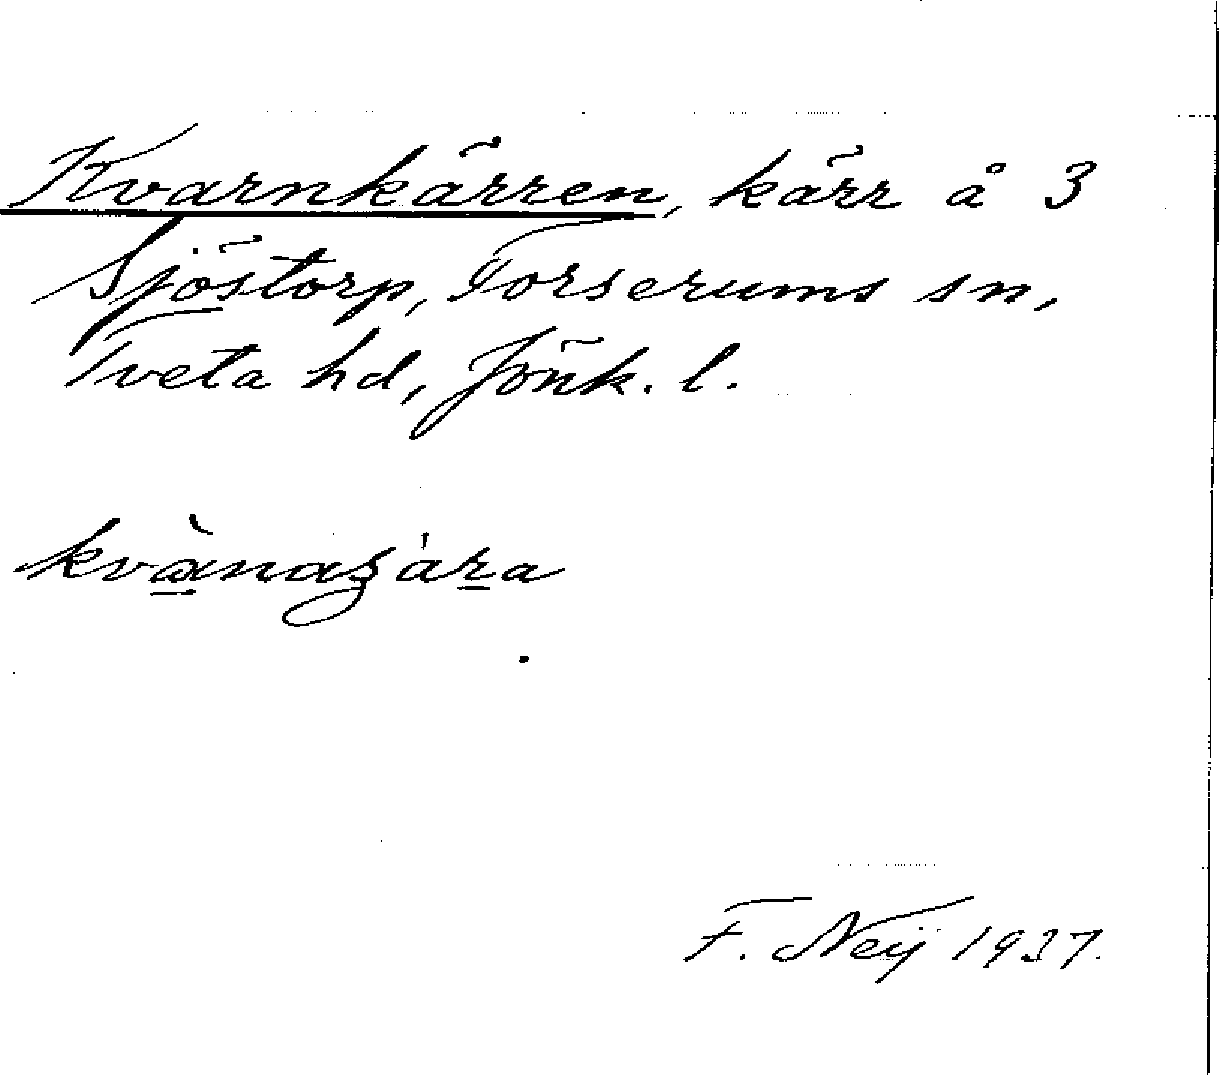 Kvarnkärren, kärr å 3
Sjöstorp, Forserums sn,
Tveta hd, Jönk. l.
F. Neij 1937.